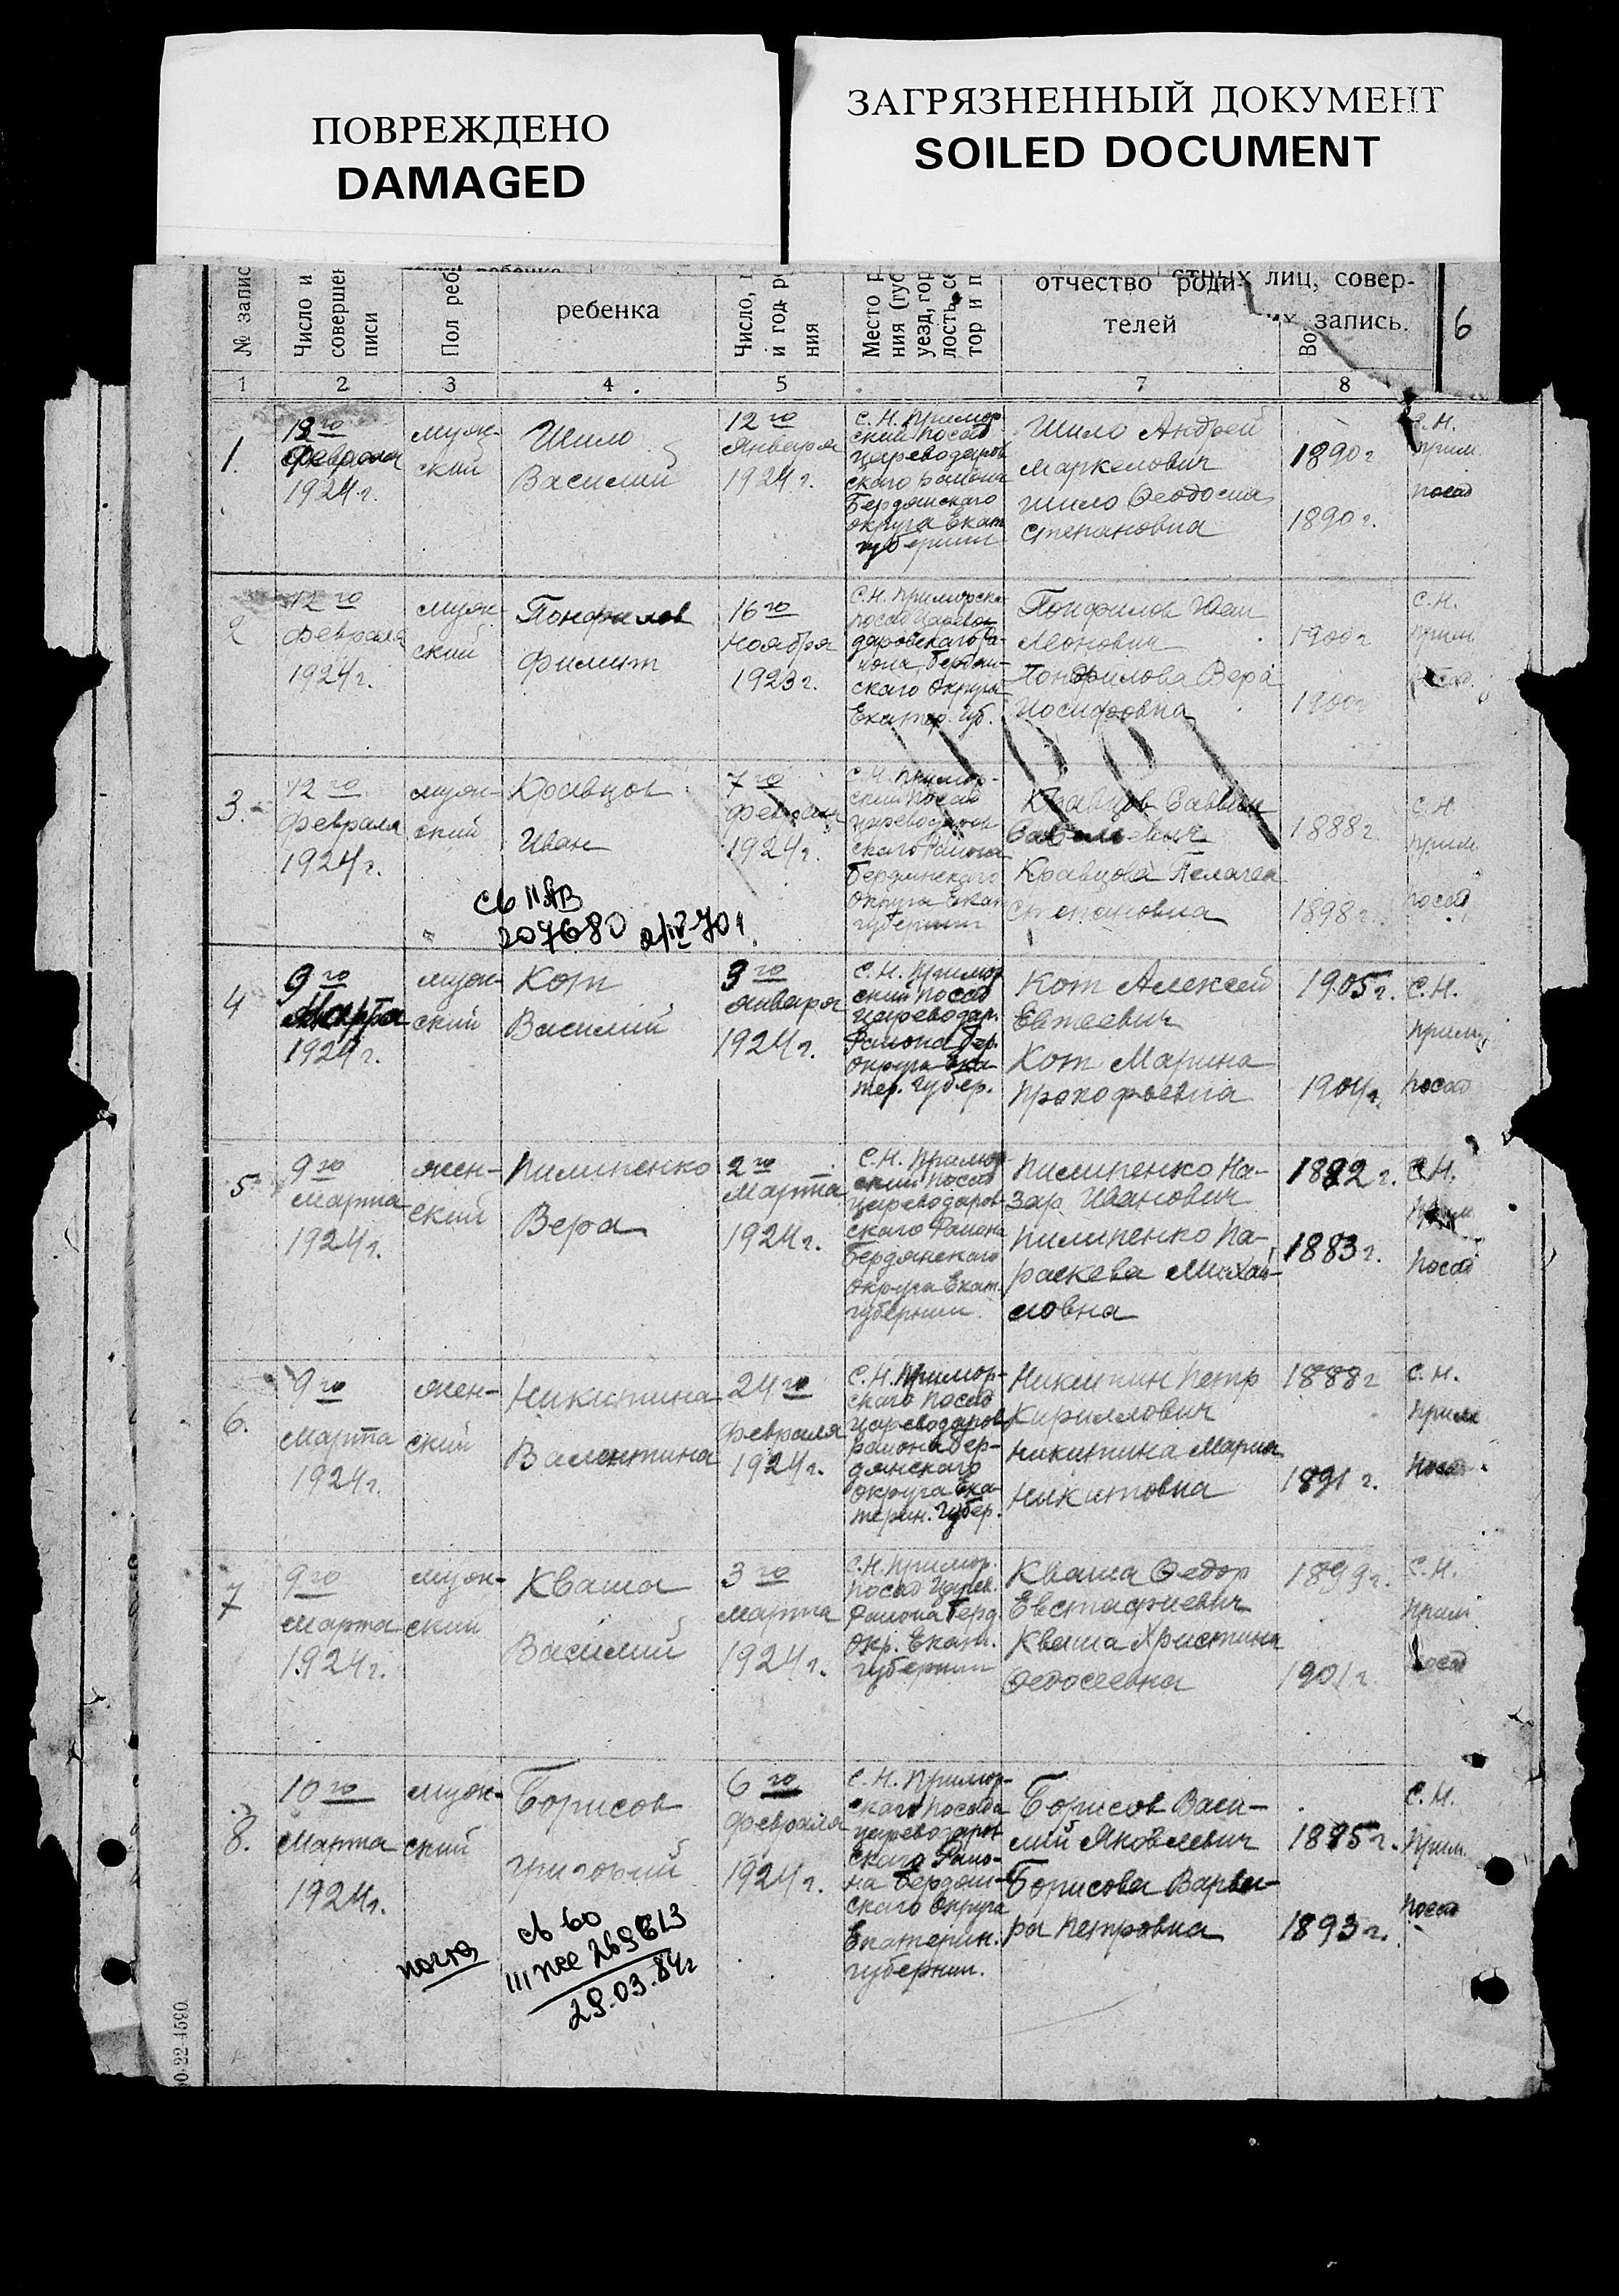 ПОВРЕЖДЕНО
DAMAGED
ЗАГРЯЗНЕННЫЙ ДОКУМЕНТ
SOILED DOCUMENT
№ запис
Число и
совершен
писи
Пол реб
ребенка
Число,
и год р
ния
Место р
ния (губ
уезд, гор
лость, се
тор и п
отчество роди-
телей
стных лиц, совер-
запись.
Во
6
1 2 3 4 5 7 8
1.
12го
февраля
1924 г.
муж-
ский
Шило
Василий
12го
января
1924 г.
С. Н. Примор
ский посад
Цареводаров
ского района
Бердянского
округа Екат
губернии
Шило Андрей
Маркелович
Шило Феодосия
Степановна
1890 г
1890 г.
С.Н.
Прим
посад
2
12го
февраля
1924 г.
муж-
ский
Понфилов
Филип
16го
ноября
1923 г.
С.Н. Приморск
посад Царево
даровского ра-
иона Бердян-
ского округа
Екатер. Губ.
Понфилов Иван
Леонович
Понфилова Вера
Иосифовна
1900 г
1900 г
С.Н.
Прим
3.
12го
февраля
1924 г.
муж-
ский
Кравцов
Иван
7го
февраля
1924 г.
С.Н. Примор-
ский посад
Цареводаров
ского района
Бердянского
округа Екат
губернии
Кравцов
Кравцова Пелагея
Степановна
1888 г
1898 г.
С.Н
Прим.
посад
св II ЯВ
207680 2/IV-70 г.
4
9го
Марта
1924 г.
муж-
ский
Кот
Василий
3го
января
1924 г.
С. Н. Примор
ский посад
Цареводар.
Района Бер.
округа Ека-
тер. Губер.
Кот Алексей
Евтеевич
Кот Марина
Прокофьевна
1905 г.
1904 г.
С.Н.
Прим
посад
5
9го
Марта
1924 г.
жен-
ский
Пилипенко
Вера
2го
Марта
1924 г.
С.Н. Примор
ский посад
Цареводаров
ского Района
Бердянского
округа Екат.
губернии.
Пилипенко На-
зар Иванович
Пилипенко Па-
раскева Михай-
ловна
1882 г.
1883 г.
С.Н.
посад
6.
9го
Марта
1924 г.
жен-
ский
Никитина
Валентина
24го
февраля
1924 г.
С.Н. Примор-
ского посад
Цареводаров
района Бер-
дянского
округа Ека-
терин. Губер.
Никитин Петр
Кириллович
Никитина Мария
Никитовна
1888 г
1891 г.
С.Н.
Прим
посад
7
9го
Марта
1924 г.
муж-
ский
Кваша
Василий
3го
Марта
1924 г.
С.Н. Примор.
посад Царев.
Района Берд.
окр. Екат.
губернии
Кваша Федор
Евстафиевич
Кваша Христина
Федосеевна
1899 г.
1901 г
С.Н.
Прим
посад
8.
10го
Марта
1924 г.
муж-
ский
Борисов
Григорий
6го
февраля
1924 г.
С. Н. Примор-
ского посада
Цареводаров
ского Раио-
на Бердян-
ского округа
Екатерин.
губернии.
Борисов Васи-
лий Яковлевич
Борисова Варва-
ра Петровна
1895 г.
1893 г.
С.Н.
Прим.
посад
св 60
29.03.84 г
0-22-4590